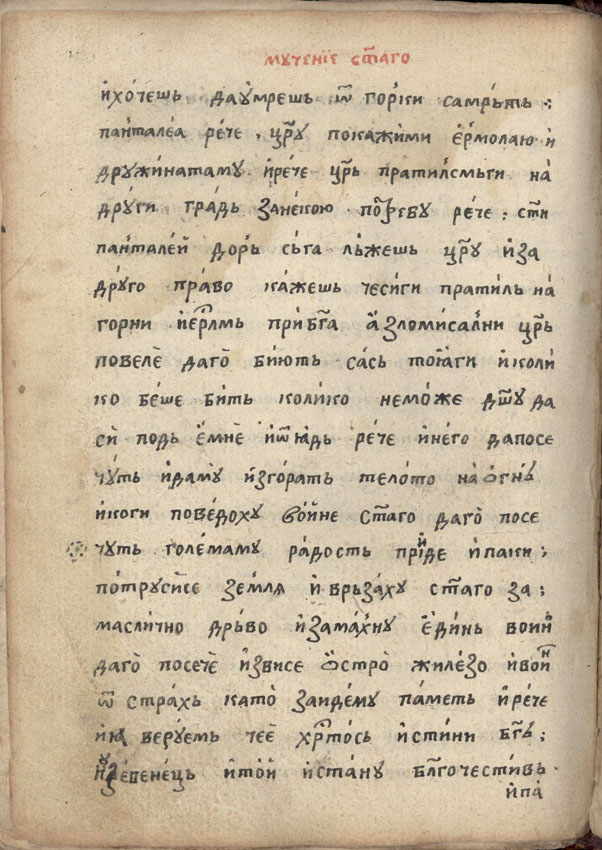 мꙋченїе ст҃аго
и҆хо́чешь даꙋмрешь ѿ горки самръть :
панталеа рече , цр҃ꙋ покажими ермолаю и
дрꙋжинатамꙋ и҆рече цр҃ь пратилсмьги на
дрꙋги градь занекою потребꙋ рече : ст҃и
панталей дорь сьга льжешь цр҃ꙋ иза
дрꙋго право кажешь чесиги пратиль на
горни іерл҃мь прибг҃а азломисални цр҃ь
повеле даго биють сась тоꙗги и коли
ко беше бить колико неможе дш҃ꙋ да
си подь емне рече инего дапосе
чꙋть идамꙋ изгорать телото на ѻгнь
икоги поведохꙋ воине ст҃аго даго посе
чꙋть големамꙋ радость приде ипаки :
потрꙋсисе земля иврьзахꙋ ст҃аго за :
маслично дрьво изамахнꙋ единь воинь
даго посече извисе ѻстро жилезо ивоин
ѿ страхь като заидемꙋ паметь ирече
верꙋемь чее хрт҃ось истини бг҃ь :
итой истанꙋ бл҃гочестивь
ипа